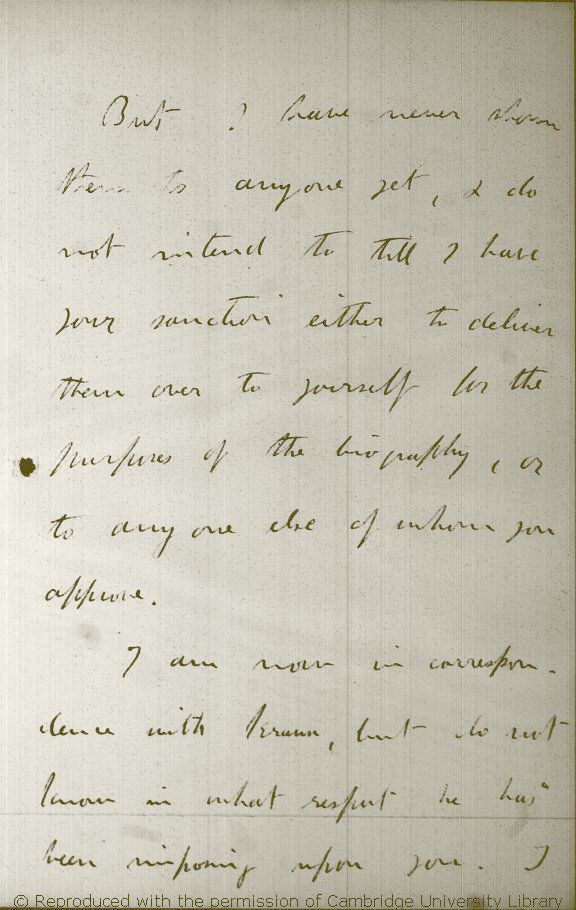 But I have never shown
them to anyone yet, & do
not intend to till I have
your sanction either to deliver
them over to yourself for the
purposes of the biography, or
to any one else of whom you
approve.
I am now in correspon-
dence with Krause, but do not
know in what respect he has
been imposing upon you. I
© Reproduced with the permission of Cambridge University Library